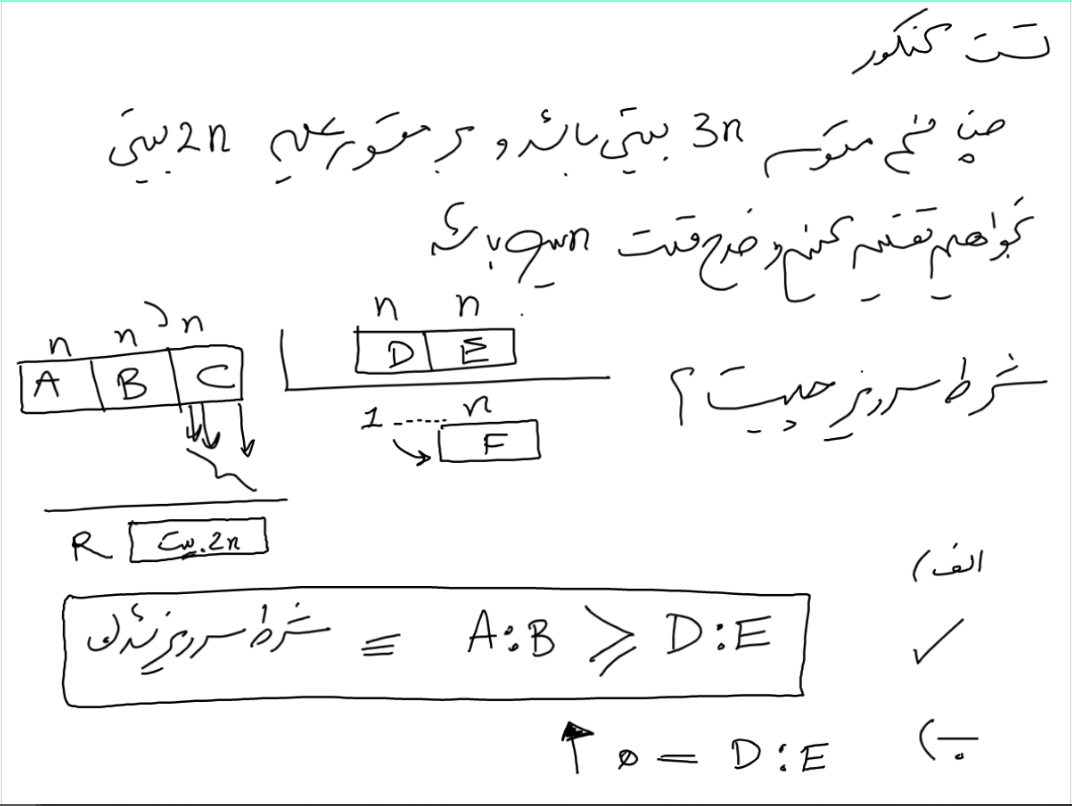 تست کنکور
چنانچه مقسوم 3n بیتی باشد و بر مقسوم علیه 2n بیتی
بخواهیم تقسیم کنیم و خارج قسمت n بیتی باشد
شرط سرریز چیست؟
n n n
A B C
n n
D E
1 ...... n
F
R 2n بیت
الف)
شرط سرریز شدن ≡ A:B ⩾ D:E
✓
ب)
↑ ø = D:E